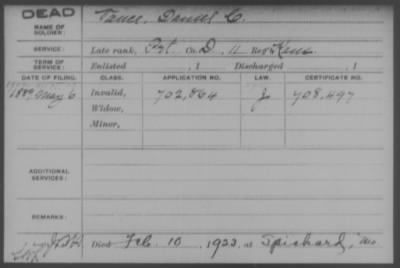 DEAD
NAME OF SOLDIER:
Vance, Daniel C.
SERVICE: Late rank, Pvt. Co. D, 11 Reg't Kans.
TERM OF SERVICE: Enlisted , 1 Discharged , 1
DATE OF FILING. CLASS. APPLICATION NO. LAW. CERTIFICATE NO.
1889 May 6 Invalid, 702,864 408,497
Widow,
Minor,
ADDITIONAL SERVICES:
REMARKS:
Died Feb. 10, 1923, at Spickard, Mo.